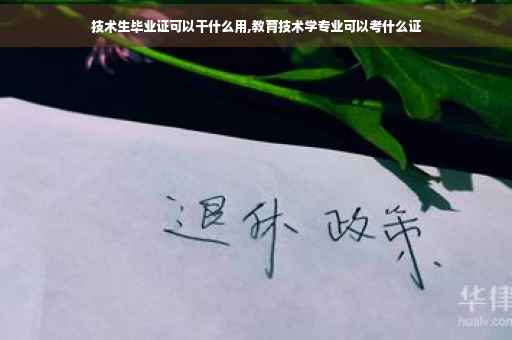 技术生毕业证可以干什么用,教育技术学专业可以考什么证
退休 政策
华律
hualv.com